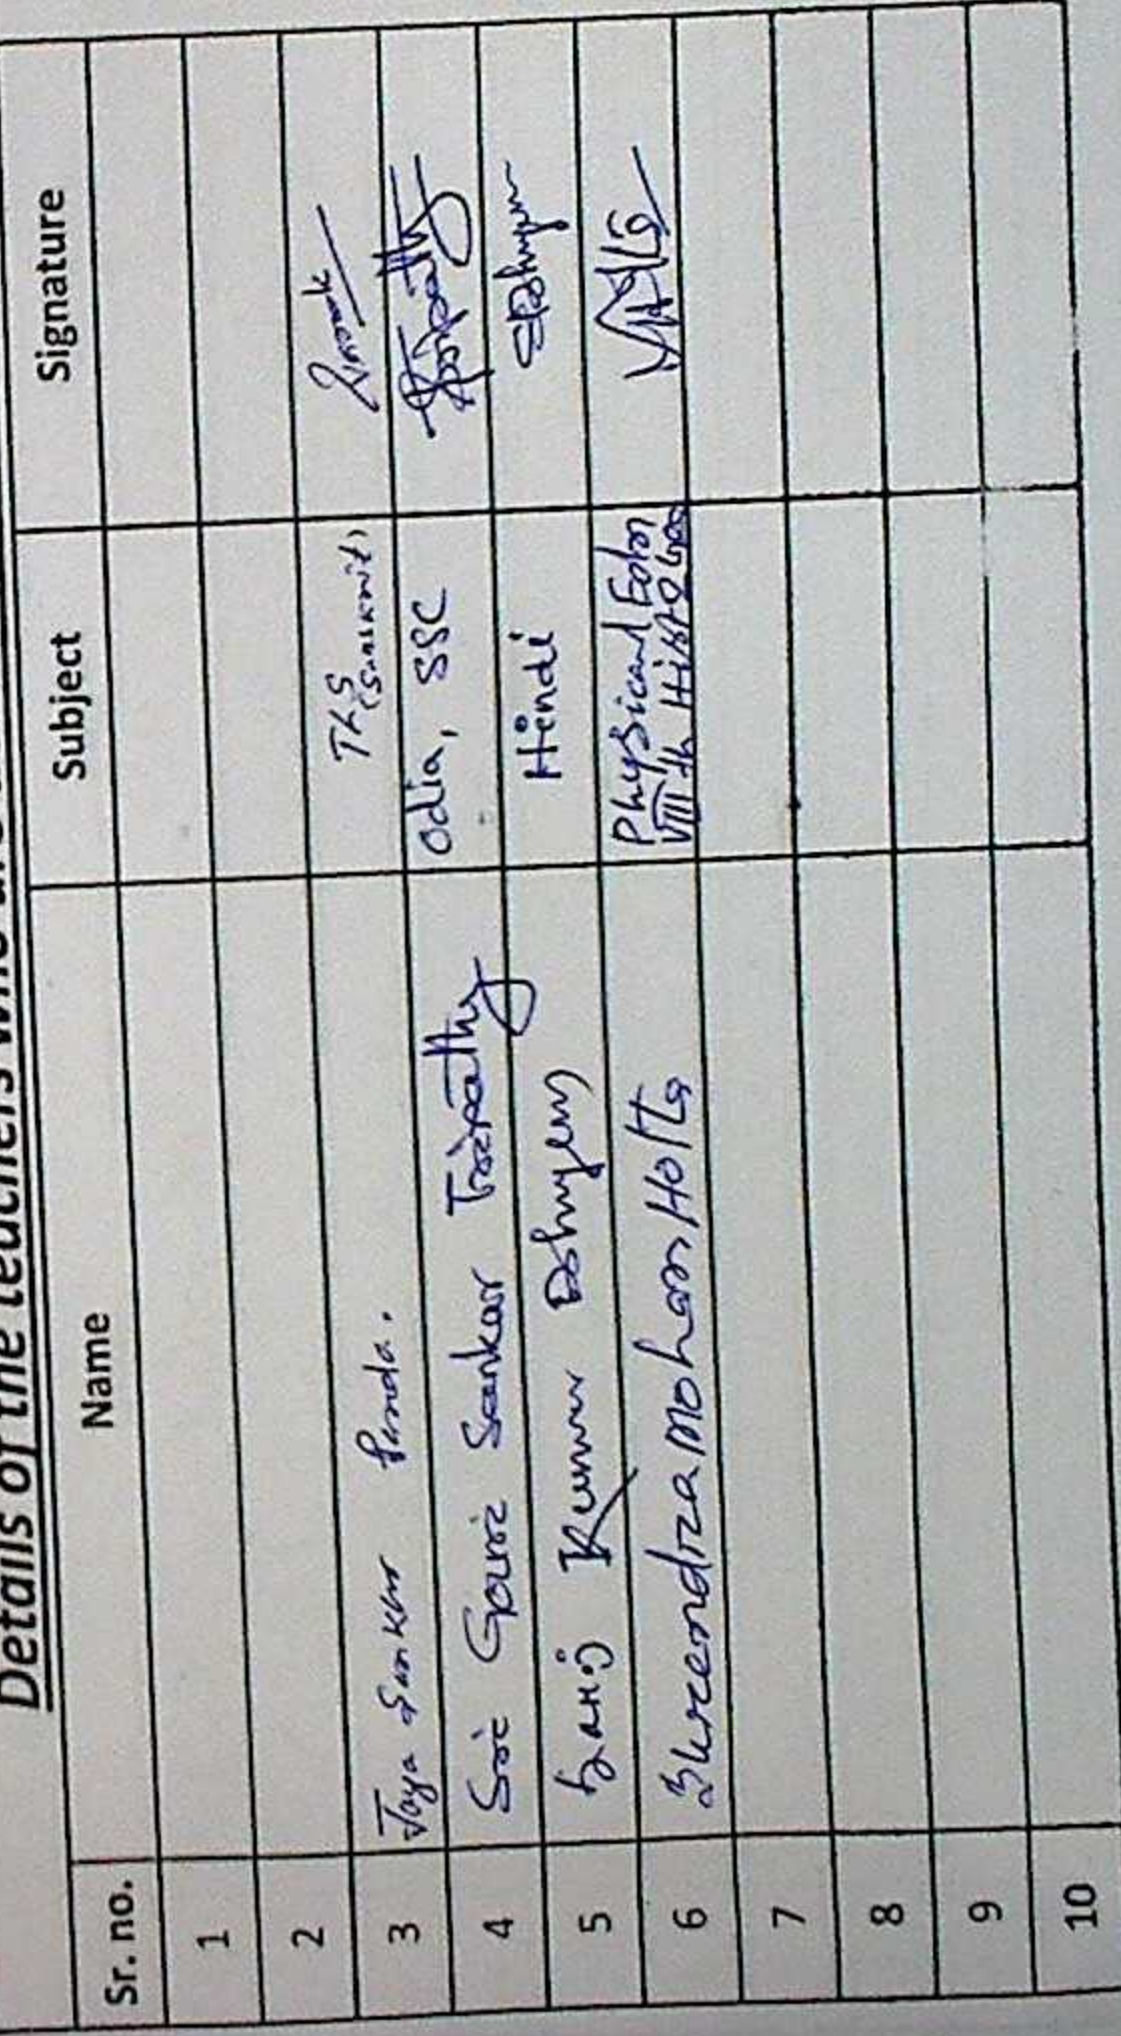 Details of the teachers who
Sr. no. Name Subject Signature
1
2
3 Jaya Sankar Panda. TLS (Sanskrit)
4 Sri Gouri Sankar Tripathy Odia, SSC
5 Kumar Hindi
6 Surendra Mohan Hotta Physical Edn
VIII th Hist & Geo
7
8
9
10